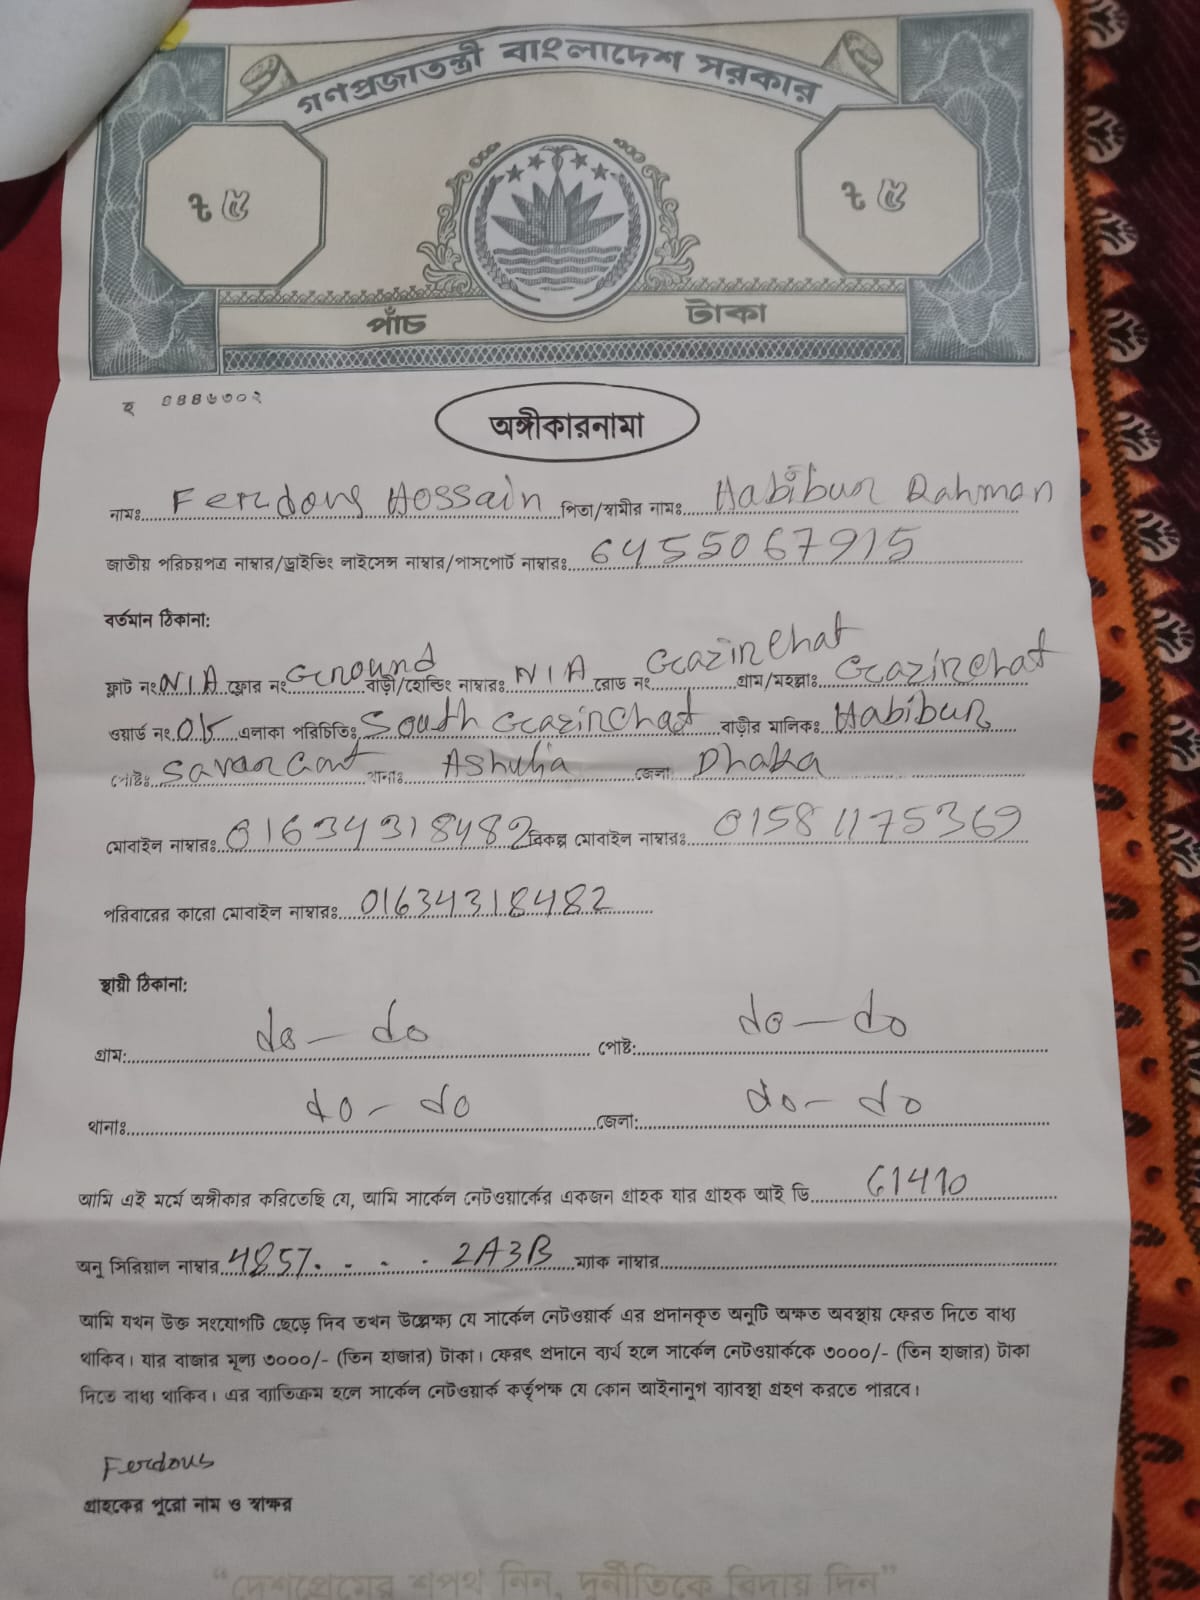 গণপ্রজাতন্ত্রী বাংলাদেশ সরকার
৳ ৫ ৳ ৫
পাঁচ টাকা
হ ৪৪৪৬৩০২
অঙ্গীকারনামা
নামঃ Ferdous Hossain পিতা/স্বামীর নামঃ Habibur Rahman
জাতীয় পরিচয়পত্র নাম্বার/ড্রাইভিং লাইসেন্স নাম্বার/পাসপোর্ট নাম্বারঃ 6455067915
বর্তমান ঠিকানা:
ফ্লাট নং N/A ফ্লোর নং Ground বাড়ী/হোল্ডিং নাম্বারঃ N/A রোড নং Gazirchat গ্রাম/মহল্লাঃ Gazirchat
ওয়ার্ড নং 05 এলাকা পরিচিতিঃ South Gazirchat বাড়ীর মালিকঃ Habibur
পোষ্টঃ Savar Cant থানাঃ Ashulia জেলা Dhaka
মোবাইল নাম্বারঃ 01634318482 বিকল্প মোবাইল নাম্বারঃ 01581175369
পরিবারের কারো মোবাইল নাম্বারঃ 01634318482
স্থায়ী ঠিকানা:
গ্রাম: do - do পোষ্ট: do - do
থানাঃ do - do জেলা: do - do
আমি এই মর্মে অঙ্গীকার করিতেছি যে, আমি সার্কেল নেটওয়ার্কের একজন গ্রাহক যার গ্রাহক আই ডি 61410
অনু সিরিয়াল নাম্বার 4857. . . . 2A3B ম্যাক নাম্বার
আমি যখন উক্ত সংযোগটি ছেড়ে দিব তখন উল্লেক্ষ্য যে সার্কেল নেটওয়ার্ক এর প্রদানকৃত অনুটি অক্ষত অবস্থায় ফেরত দিতে বাধ্য
থাকিব। যার বাজার মূল্য ৩০০০/- (তিন হাজার) টাকা। ফেরৎ প্রদানে ব্যর্থ হলে সার্কেল নেটওয়ার্ককে ৩০০০/- (তিন হাজার) টাকা
দিতে বাধ্য থাকিব। এর ব্যাতিক্রম হলে সার্কেল নেটওয়ার্ক কর্তৃপক্ষ যে কোন আইনানুগ ব্যাবস্থা গ্রহণ করতে পারবে।
Ferdous
গ্রাহকের পুরো নাম ও স্বাক্ষর
“দেশপ্রেমের শপথ নিন, দুর্নীতিকে বিদায় দিন”